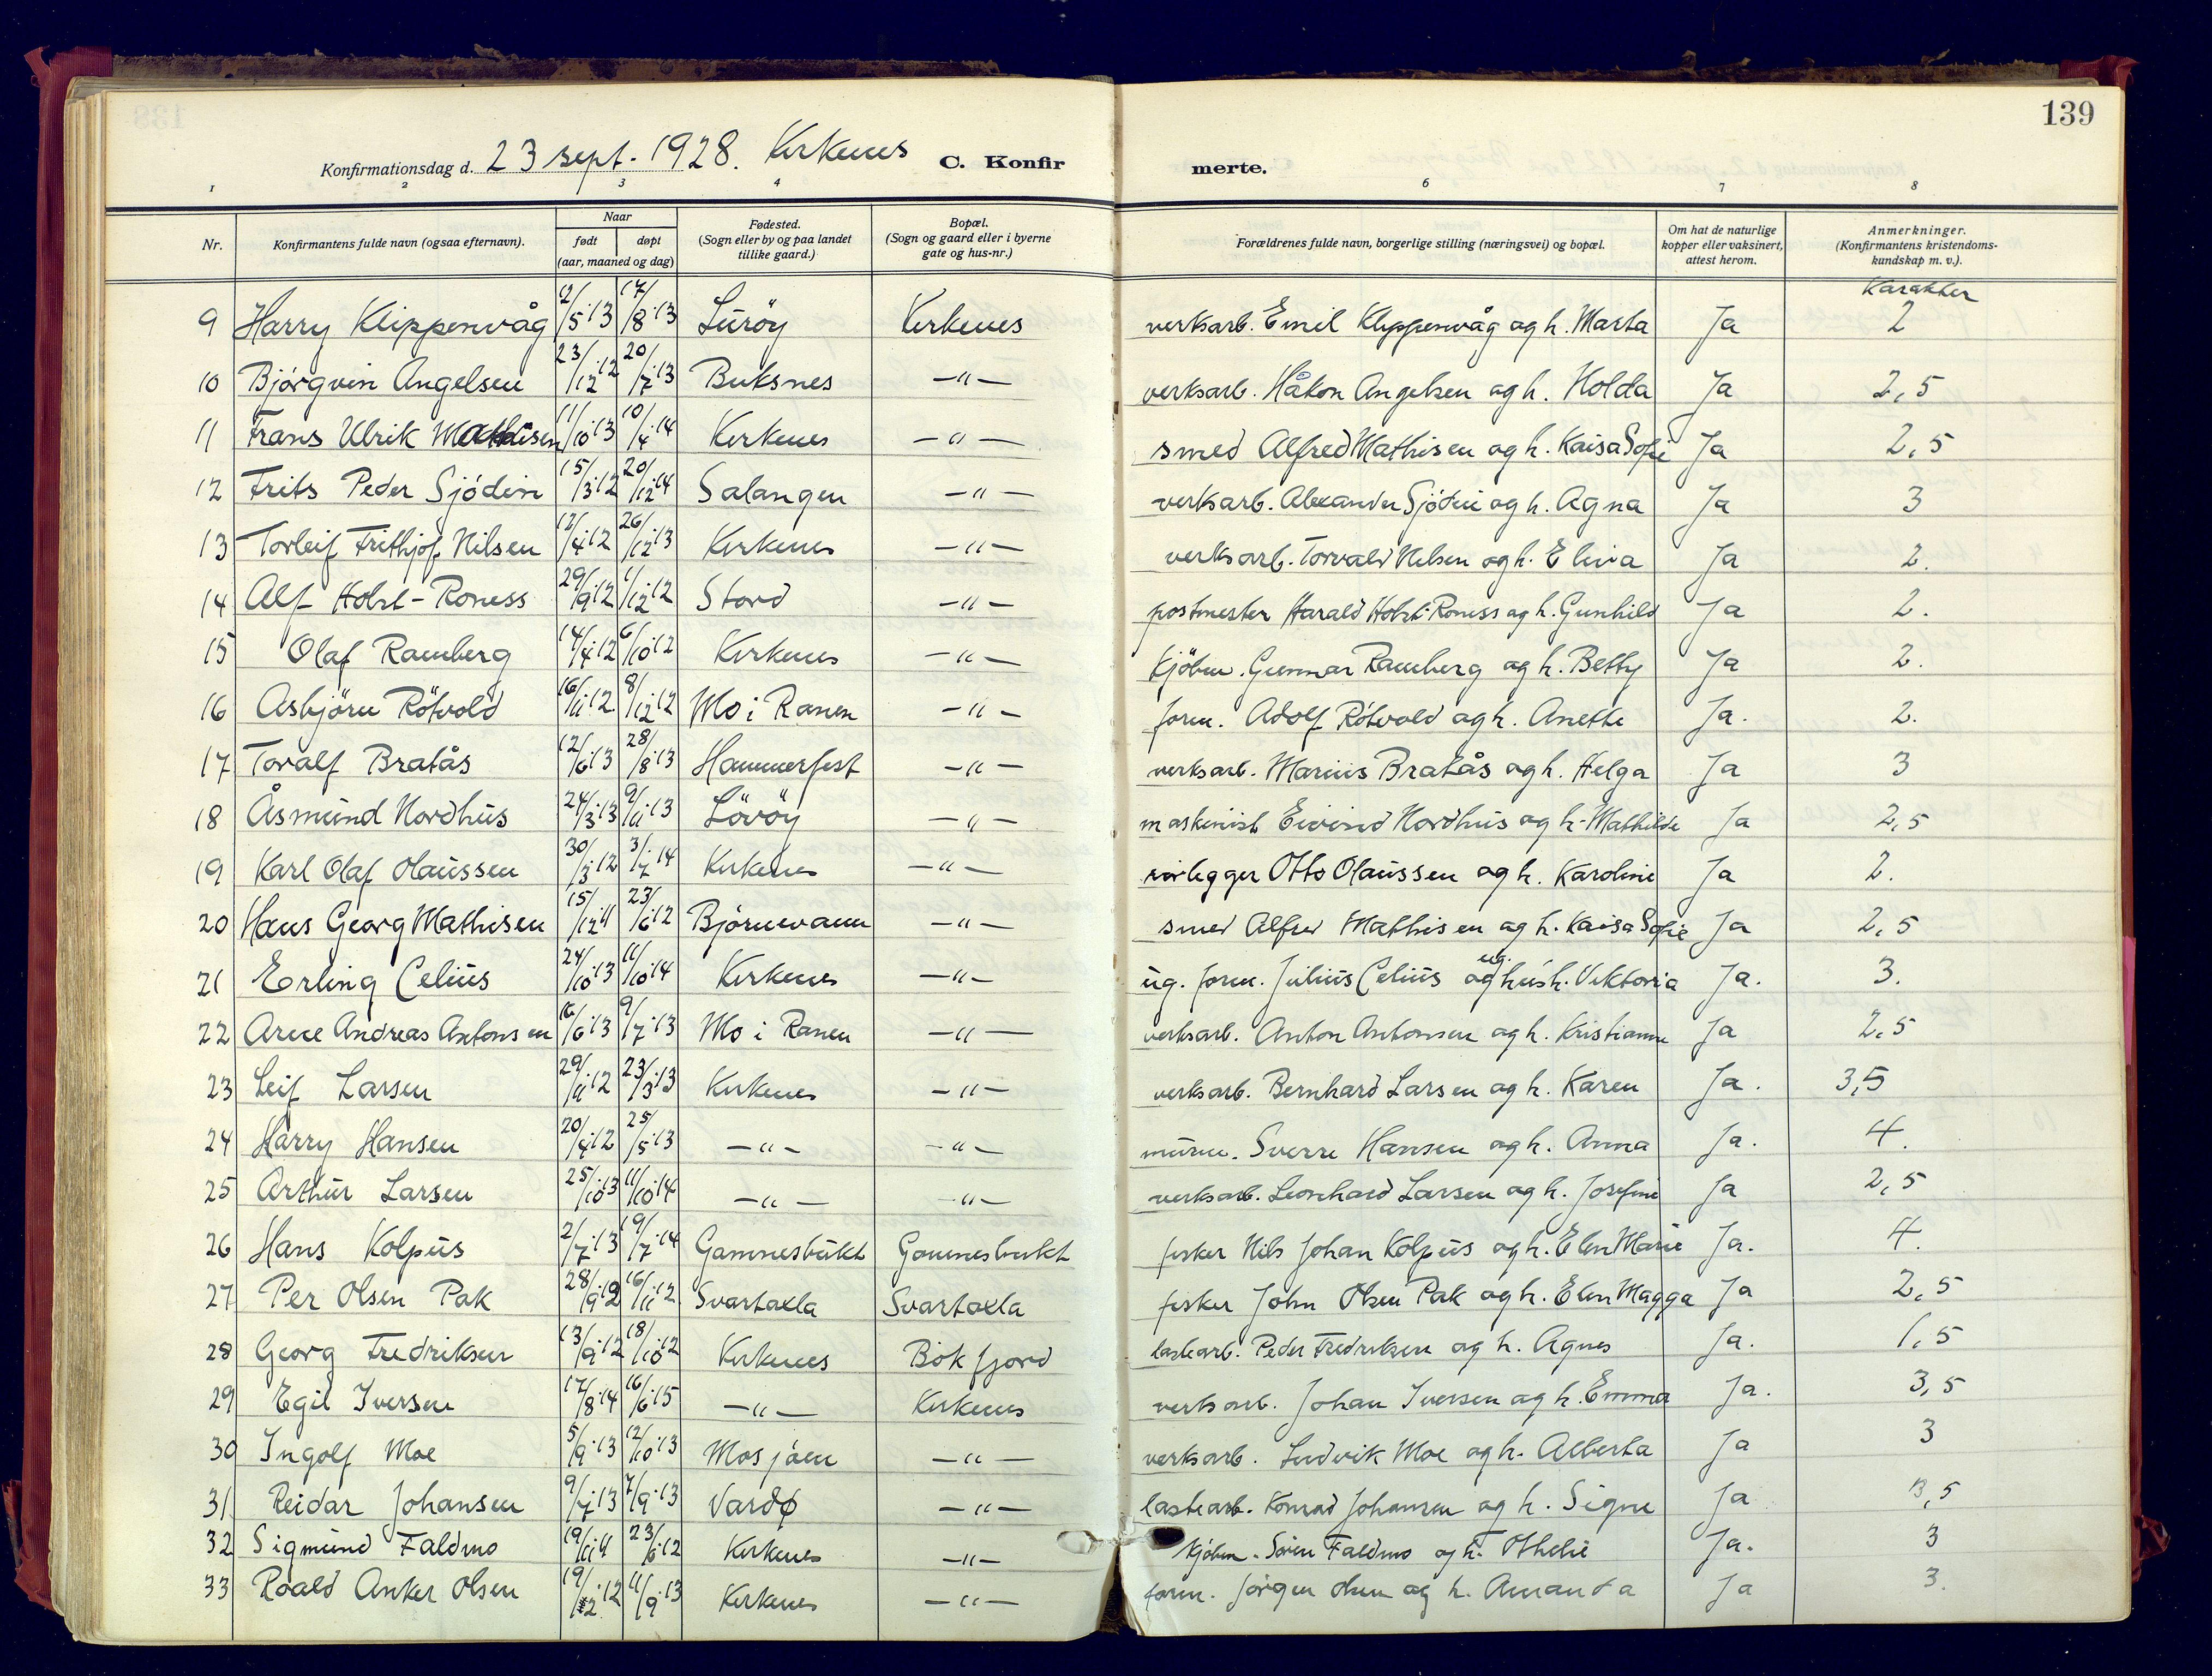 139
Konfirmationsdag d. 23 sept. 1928. Kirkenes C. Konfirmerte.
1 2 3 4 6 7 8
Nr. Konfirmantens fulde navn (ogsaa efternavn). Naar født døpt (aar, maaned og dag) Fødested. (Sogn eller by og paa landet tillike gaard.) Bopæl. (Sogn og gaard eller i byerne gate og hus-nr.) Forældrenes fulde navn, borgerlige stilling (næringsvei) og bopæl. Om hat de naturlige kopper eller vaksinert, attest herom. Anmerkninger. (Konfirmantens kristendomskundskap m. v.).
Karakter
9 Harry Klippenvåg 12/5-13 17/8-13 Luröy Kirkenes verksarb. Emil Klippenvåg og h. Marta Ja 2
10 Björgvin Angelsen 23/12-12 20/7-13 Buksnes -"- verksarb. Håkon Angelsen og h. Holda Ja 2,5
11 Frans Ulrik Mathisen 11/10-13 10/4-14 Kirkenes -"- smed Alfred Mathisen og h. Kaisa Sofie Ja 2,5
12 Frits Peder Sjödin 15/3-12 20/12-14 Salangen -"- verksarb. Alexander Sjödin og h. Agna Ja 3
13 Torleif Frithjof Nilsen 12/4-12 26/12-13 Kirkenes -"- verksarb. Torvald Nilsen og h. Elina Ja 2.
14 Alf Holst-Roness 29/9-12 1/12-12 Stord -"- postmester Harald Holst-Roness og h. Gunhild Ja 2.
15 Olaf Ramberg 14/4-12 6/10-12 Kirkenes -"- kjöbm. Gunnar Ramberg og h. Betty Ja 2.
16 Asbjörn Rötvold 16/11-12 8/12-12 Mo i Ranen -"- form. Adolf Rötvold og h. Anette Ja. 2.
17 Toralf Bratås 12/6-13 28/8-13 Hammerfest -"- verksarb. Marius Bratås og h. Helga Ja 3
18 Åsmund Nordhus 24/3-13 9/11-13 Lövöy -"- maskinist Eivind Nordhus og h. Mathilde Ja 2,5
19 Karl Olaf Olaussen 30/3-12 3/7-14 Kirkenes -"- rørlegger Otto Olaussen og h. Karoline Ja 2.
20 Hans Georg Mathisen 15/12-11 23/6-12 Björnevann -"- smed Alfred Mathisen og h. Kaisa Sofie Ja 2,5
21 Erling Celius 24/10-13 11/10-14 Kirkenes -"- ug. form. Julius Celius og ug. hush. Viktoria Ja. 3.
22 Arne Andreas Antonsen 16/6-13 9/7-13 Mo i Ranen -"- verksarb. Anton Antonsen og h. Kristianne Ja 2,5
23 Leif Larsen 29/11-12 23/3-13 Kirkenes -"- verksarb. Bernhard Larsen og h. Karen Ja. 3,5
24 Harry Hansen 20/4-12 25/5-13 -"- -"- murm. Sverre Hansen og h. Anna Ja. 4.
25 Arthur Larsen 25/10-13 11/10-14 -"- -"- verksarb. Leonhard Larsen og h. Josefine Ja 2,5
26 Hans Kolpus 2/7-13 19/7-14 Gamnesbukt Gamnesbukt fisker Nils Johan Kolpus og h. Elen Marie Ja. 4.
27 Per Olsen Pak 28/9-12 16/11-12 Svartaxla Svartaxla fisker John Olsen Pak og h. Elen Magga Ja 2,5
28 Georg Fredriksen 13/9-12 18/10-12 Kirkenes Bökfjord lastearb. Peder Fredriksen og h. Agnes Ja. 1,5
29 Egil Iversen 17/8-14 16/6-15 -"- Kirkenes verksarb. Johan Iversen og h. Emma Ja. 3,5
30 Ingolf Moe 5/9-13 12/10-13 Mosjöen -"- verksarb. Ludvik Moe og h. Alberta Ja 3
31 Reidar Johansen 9/7-13 7/9-13 Vardø -"- lastearb. Konrad Johansen og h. Signe Ja 3,5
32 Sigmund Faldmo 19/11-11 23/6-12 Kirkenes -"- kjöbm. Sören Faldmo og h. Othelie Ja. 3
33 Roald Anker Olsen 19/2-12 11/9-13 Kirkenes -"- form. Jörgen Olsen og h. Amanda Ja 3.